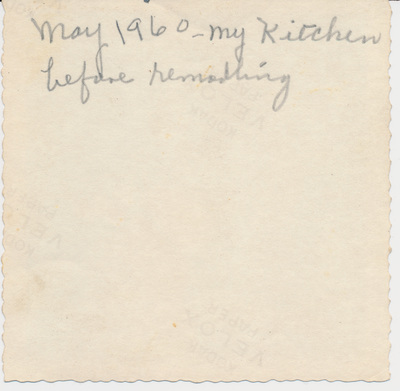 May 1960 - my Kitchen
before remodling
KODAK
VELOX
KODAK
VELOX
PAPER
VELOX
KODAK